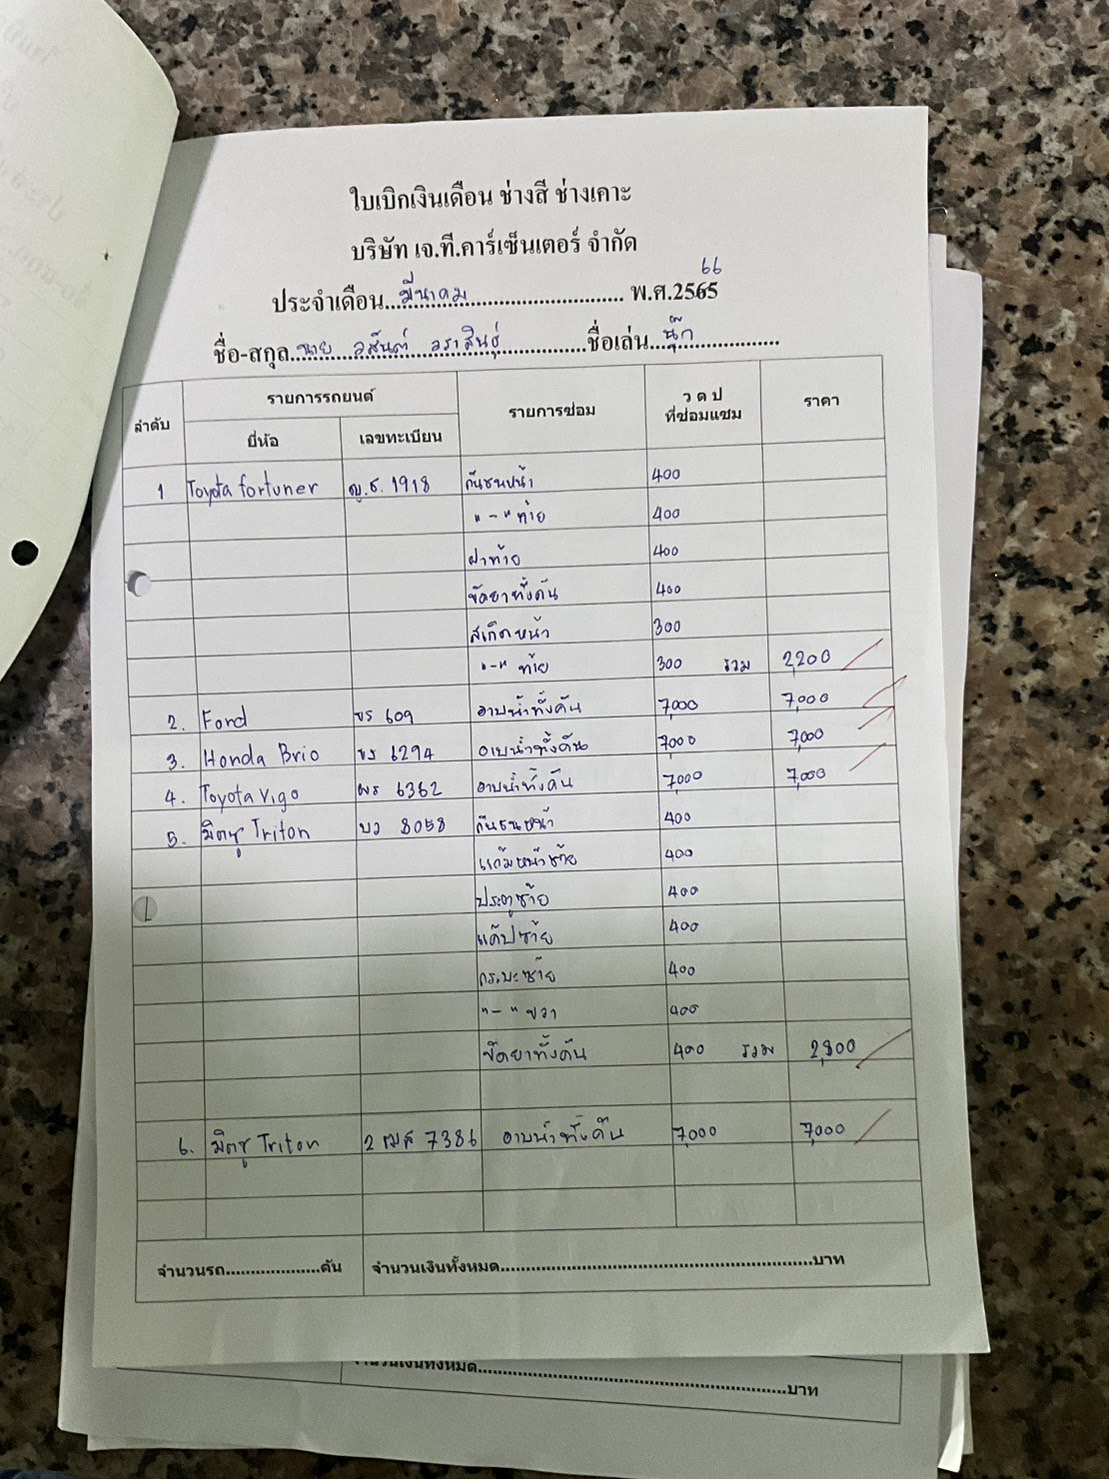 ใบเบิกเงินเดือน ช่างสี ช่างเคาะ
บริษัท เจ.ที.คาร์เซ็นเตอร์ จำกัด
ประจำเดือน...มีนาคม... พ.ศ.2565 66
ชื่อ-สกุล...นาย วสันต์ วราสินธุ์...ชื่อเล่น...นุ๊ก...
ลำดับ รายการรถยนต์ รายการซ่อม ว ด ป ที่ซ่อมแซม ราคา
ยี่ห้อ เลขทะเบียน
1 Toyota fortuner ญ.ธ. 1918 กันชนหน้า 400
"-" ท้าย 400
ฝาท้าย 400
ขัดยาทั้งคัน 400
สเกิดหน้า 300
"-" ท้าย 300 รวม 2,200
2. Ford ขร 609 อาบน้ำทั้งคัน 7,000 7,000
3. Honda Brio ขร 6294 อาบน้ำทั้งคัน 7,000 7,000
4. Toyota Vigo ผร 6362 อาบน้ำทั้งคัน 7,000 7,000
5. มิตซู Triton บว 8058 กันชนหน้า 400
แก้มหน้าซ้าย 400
ประตูซ้าย 400
แค๊ปซ้าย 400
กระบะซ้าย 400
"-" ขวา 400
ขัดยาทั้งคัน 400 รวม 2,800
6. มิตซู Triton 2 ฒส 7386 อาบน้ำทั้งคัน 7,000 7,000
จำนวนรถ...คัน จำนวนเงินทั้งหมด...บาท
จำนวนเงินทั้งหมด...บาท